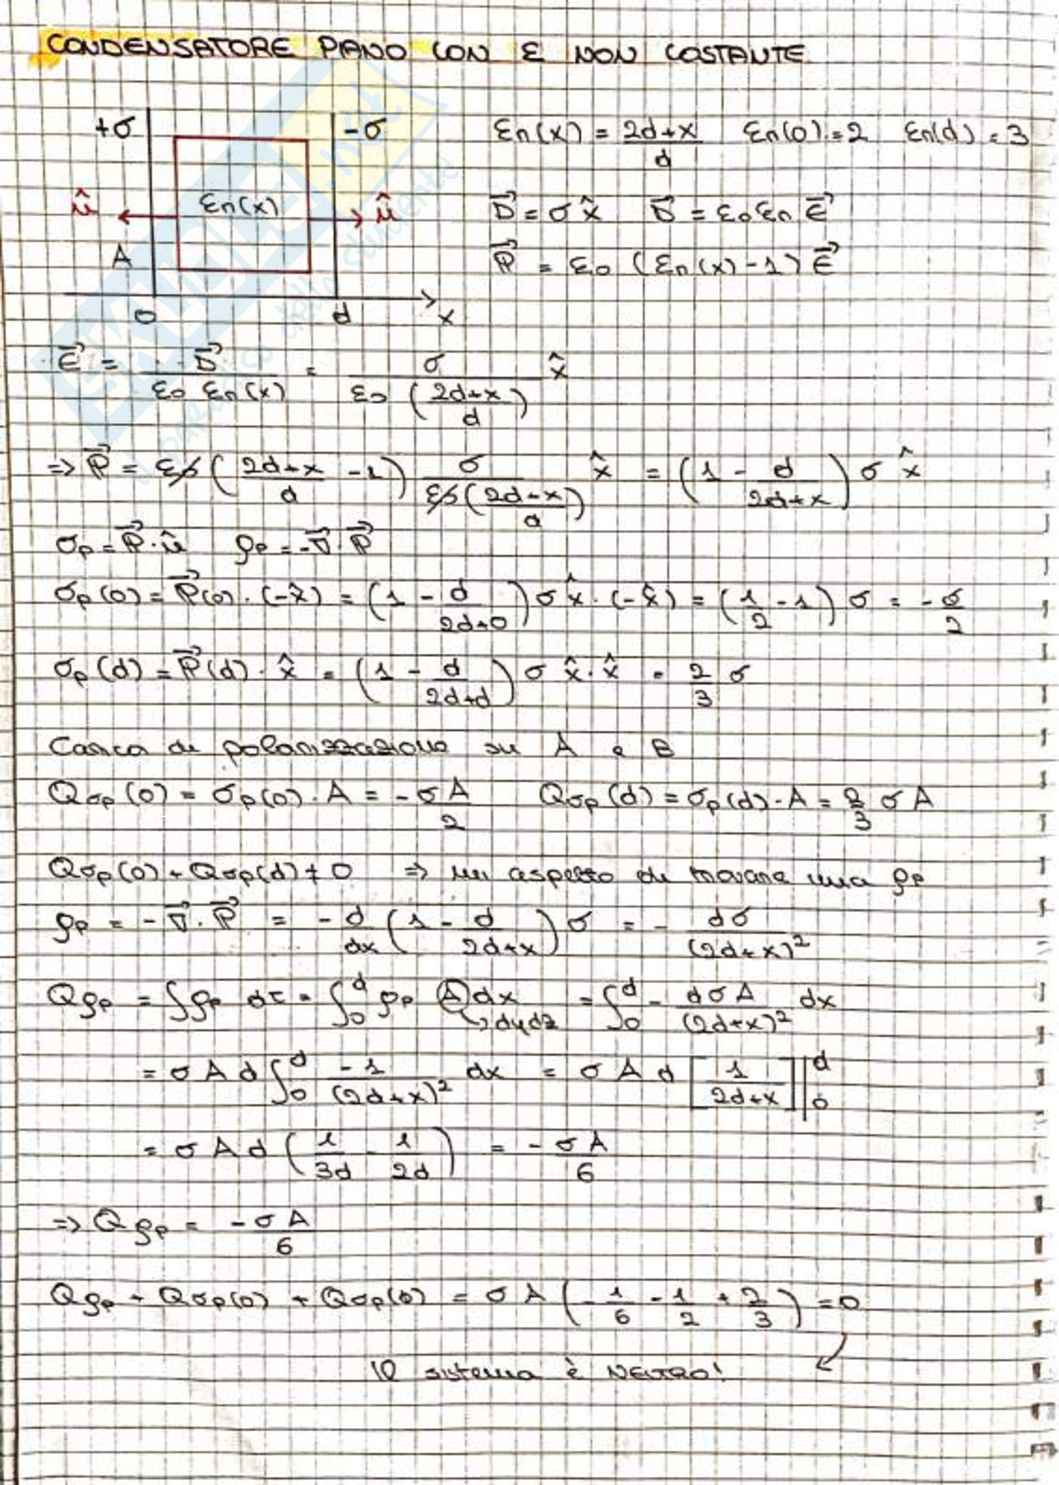 CONDENSATORE PIANO CON ε NON COSTANTE
+σ -σ εr(x) = (2d+x)/d εr(0) = 2 εr(d) = 3
û εr(x) û D⃗ = σ x̂ D⃗ = ε0 εr E⃗
A P⃗ = ε0 (εr(x) - 1) E⃗
0 d x
E⃗ = D⃗/(ε0 εr(x)) = σ/(ε0 ((2d+x)/d)) x̂
=> P⃗ = ε0 ((2d+x)/d - 1) σ/(ε0 ((2d+x)/d)) x̂ = (1 - d/(2d+x)) σ x̂
σp = P⃗·û ρp = -∇⃗·P⃗
σp(0) = P⃗(0)·(-x̂) = (1 - d/(2d+0)) σ x̂·(-x̂) = (1/2 - 1) σ = -σ/2
σp(d) = P⃗(d)·x̂ = (1 - d/(2d+d)) σ x̂·x̂ = 2/3 σ
Carica di polarizzazione su A e B
Qσp(0) = σp(0)·A = -σA/2 Qσp(d) = σp(d)·A = 2/3 σ A
Qσp(0) + Qσp(d) ≠ 0 => mi aspetto di trovare una ρp
ρp = -∇⃗·P⃗ = -d/dx (1 - d/(2d+x)) σ = - dσ/(2d+x)²
Qρp = ∫ρp dτ = ∫₀ᵈ ρp A dx = ∫₀ᵈ - dσA/(2d+x)² dx
↳ dydz
= σ A d ∫₀ᵈ -1/(2d+x)² dx = σ A d [1/(2d+x)]|₀ᵈ
= σ A d (1/3d - 1/2d) = - σA/6
=> Qρp = -σA/6
Qρp + Qσp(0) + Qσp(0) = σ A (-1/6 - 1/2 + 2/3) = 0
Il sistema è NEUTRO!